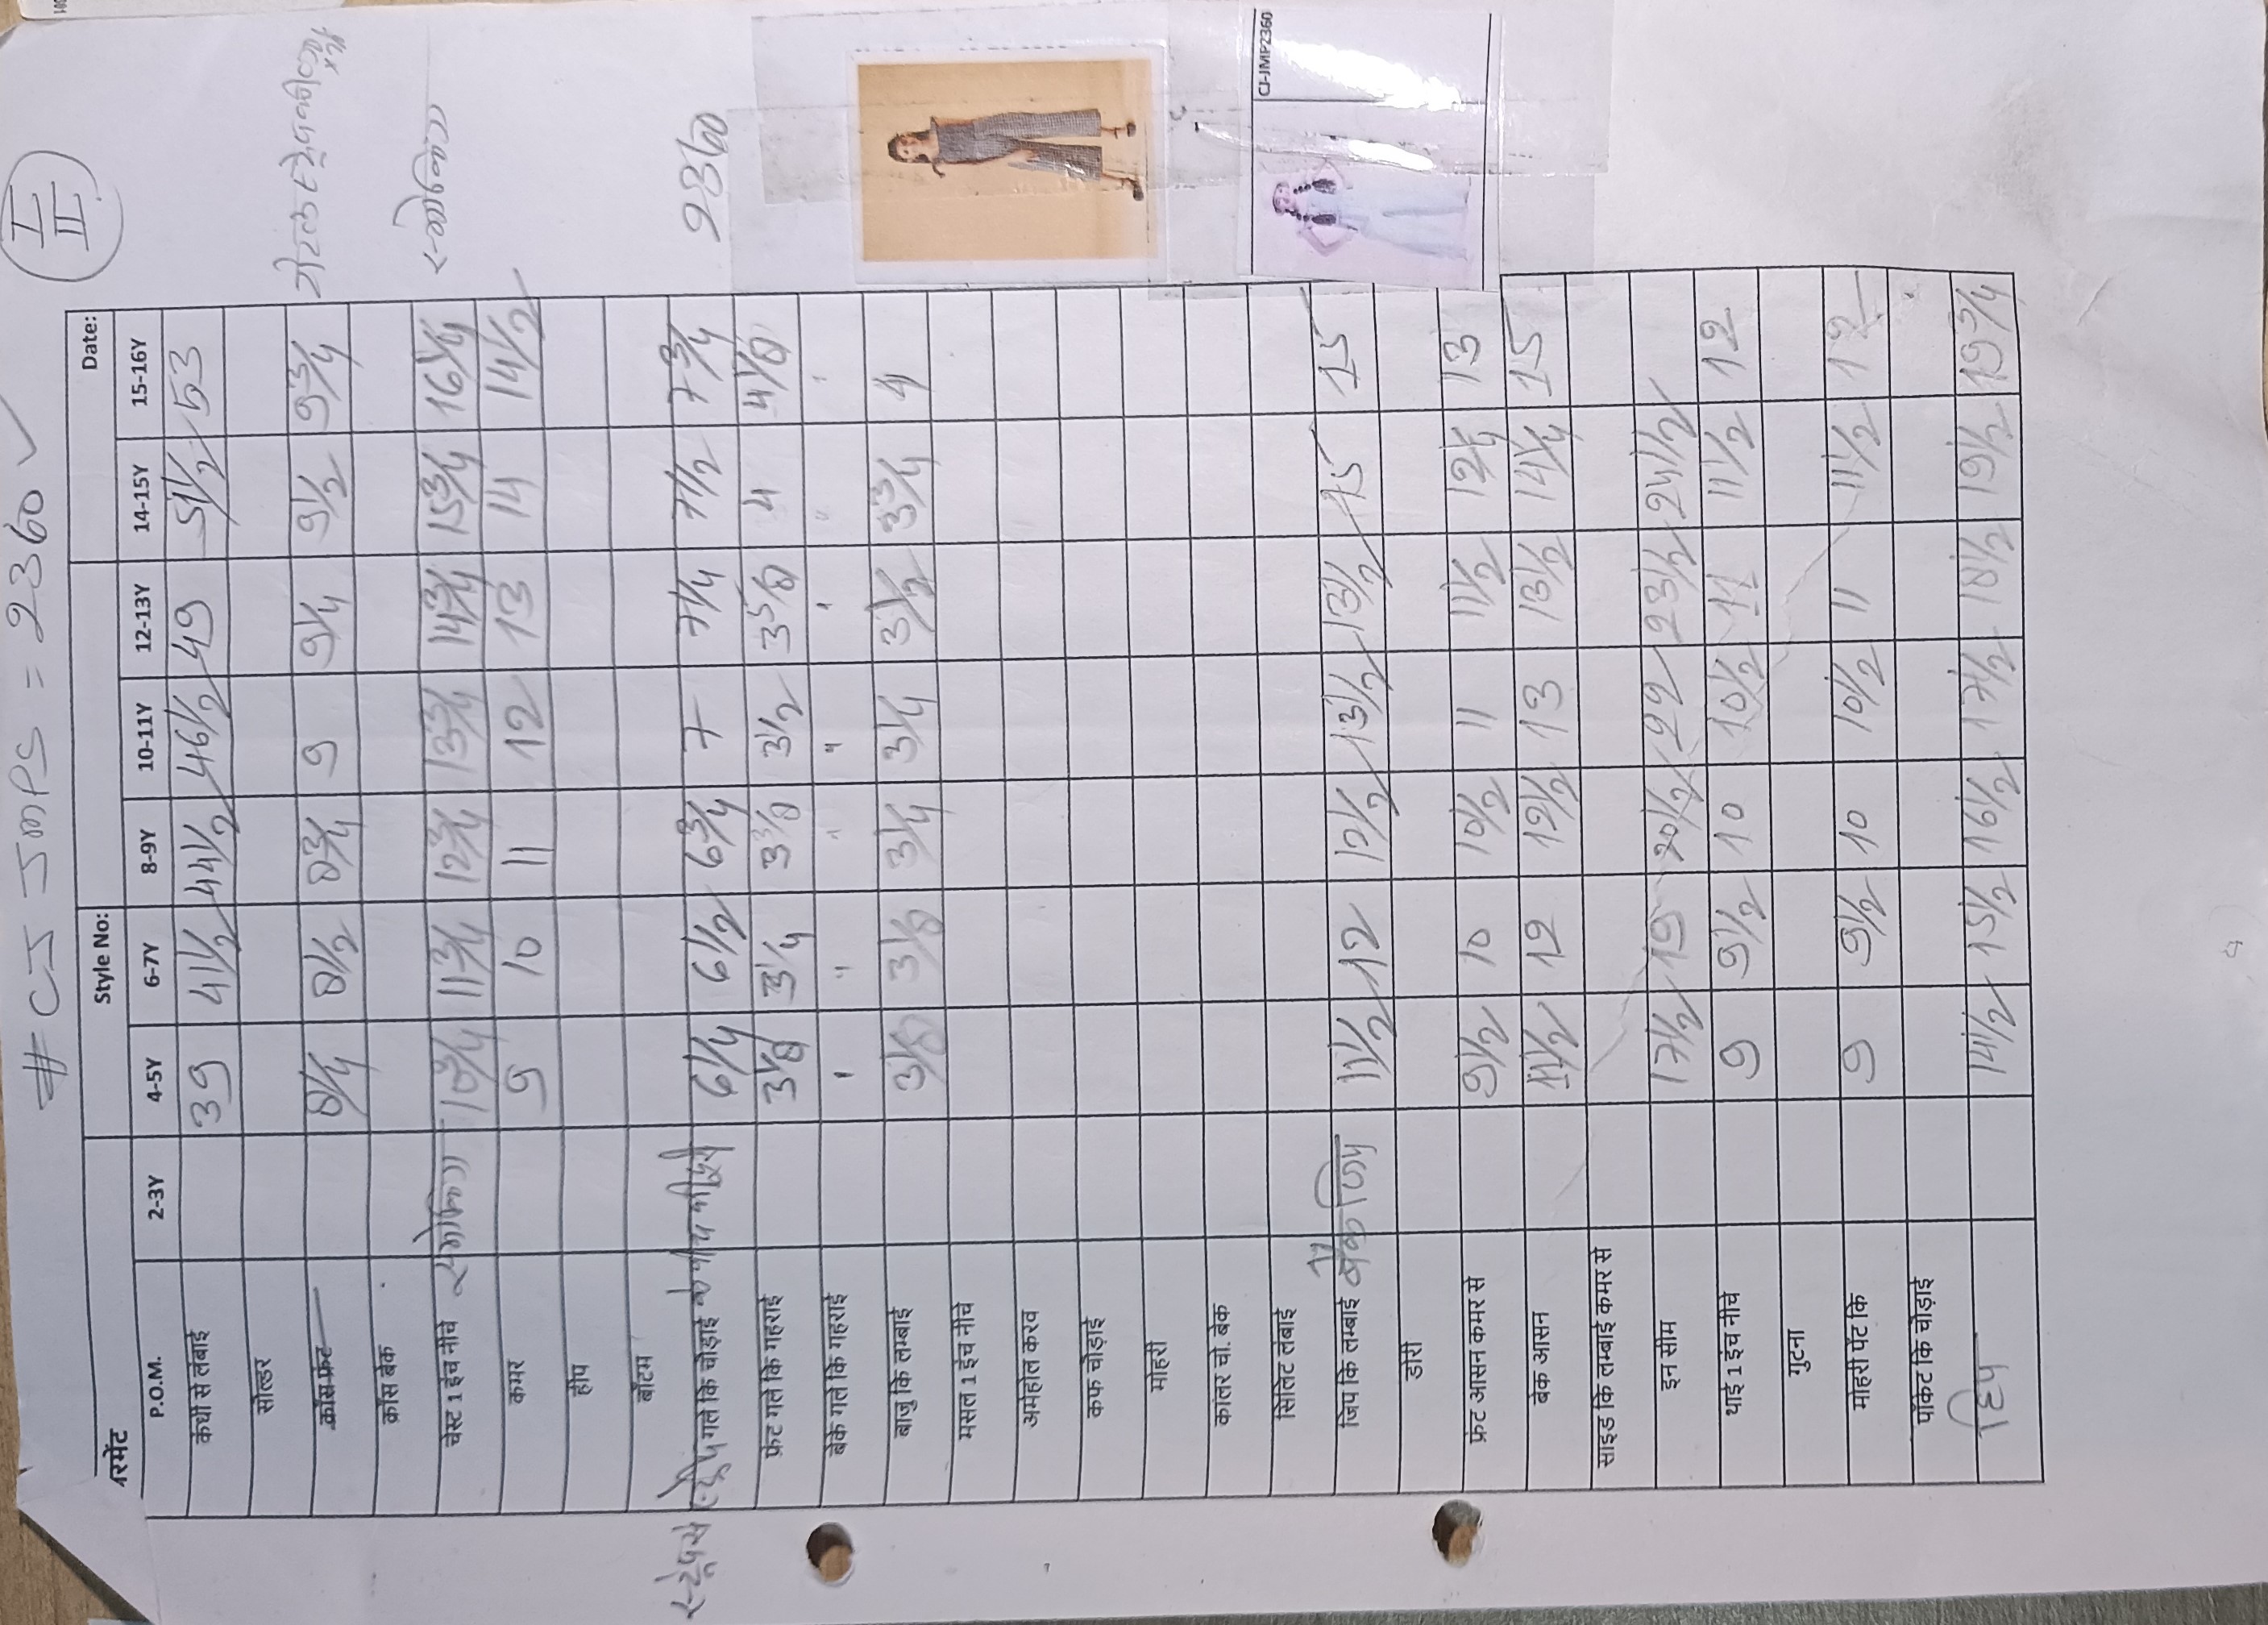 I
II
# CJ JMPS = 2360 ✓
Style No: Date:
P.O.M. 2-3Y 4-5Y 6-7Y 8-9Y 10-11Y 12-13Y 14-15Y 15-16Y
कंधी से लंबाई 39 41 1/2 44 1/2 46 1/2 49 51 1/2 53
सोल्डर
क्रॉस फ्रंट 8 1/4 8 1/2 8 3/4 9 9 1/4 9 1/2 9 3/4
क्रॉस बेक
चेस्ट 1 इंच नीचे 10 3/4 11 3/4 12 3/4 13 3/4 14 3/4 15 3/4 16 1/4
कमर 9 10 11 12 13 14 14 1/2
हीप
बॉटम
गले कि चौड़ाई 6 1/4 6 1/2 6 3/4 7 7 1/4 7 1/2 7 3/4
2360
फ्रंट गले कि गहराई 3 1/8 3 1/4 3 3/8 3 1/2 3 5/8 4 4 1/8
बेक गले कि गहराई
बाजु कि लम्बाई 3 1/8 3 1/8 3 1/4 3 1/4 3 1/2 3 3/4 4
मसल 1 इंच नीचे
अमेहोल करव
कफ चौड़ाई
मोहरी
कालर चो. बेक
सिलिट लंबाई
CJ-JMP2360
जिप कि लम्बाई बेक जिप 11 1/2 12 12 1/2 13 1/2 13 1/2 15 15
डोरी
फ्रंट आसन कमर से 9 1/2 10 10 1/2 11 11 1/2 12 1/4 13
बेक आसन 11 1/2 12 12 1/2 13 13 1/2 14 1/4 15
साइड कि लम्बाई कमर से
इन सीम 17 1/2 19 20 1/2 22 23 1/2 24 1/2
थाई 1 इंच नीचे 9 9 1/2 10 10 1/2 11 11 1/2 12
गुटना
मोहरी पेंट कि 9 9 1/2 10 10 1/2 11 11 1/2 12
पॉकेट कि चोड़ाई
हिप 14 1/2 15 1/2 16 1/2 17 1/2 18 1/2 19 1/2 19 3/4